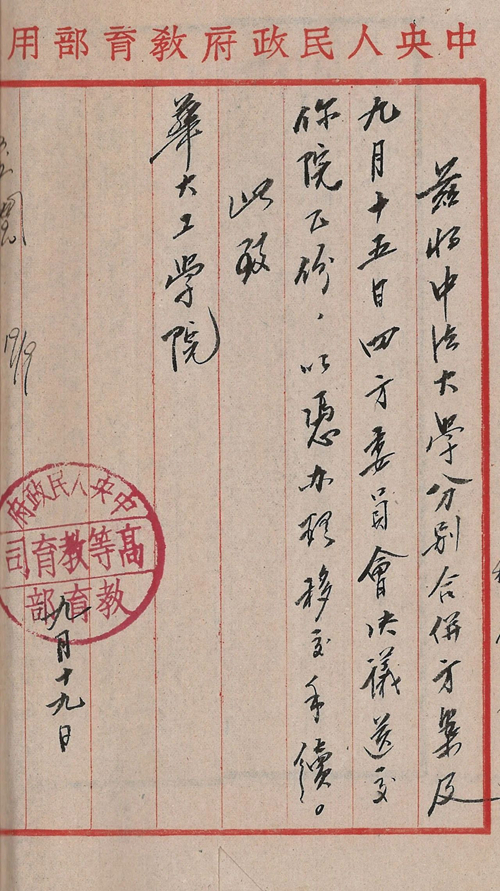 中央人民政府教育部用
茲将中法大學分別合併方案及
九月十五日四方委員會决議送交
你院乙份，以憑办理移交手續。
此致
華大工學院
中央人民政府
高等教育司
教育部
九月十九日
19/9